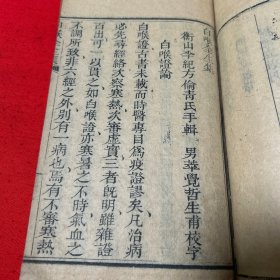 白喉全生集
衡山李紀方倫青氏手輯 男華覺哲生甫校字
白喉證論
白喉證古書未載而時醫專目爲疫證謬矣凡治病
必先尋經絡次察寒熱次審虛實三者既明雖雜證
百出可一以貫之如白喉證亦寒暑之不時氣血之
不調所致非六經之外别有一病也焉有不審寒熱
白喉全生集